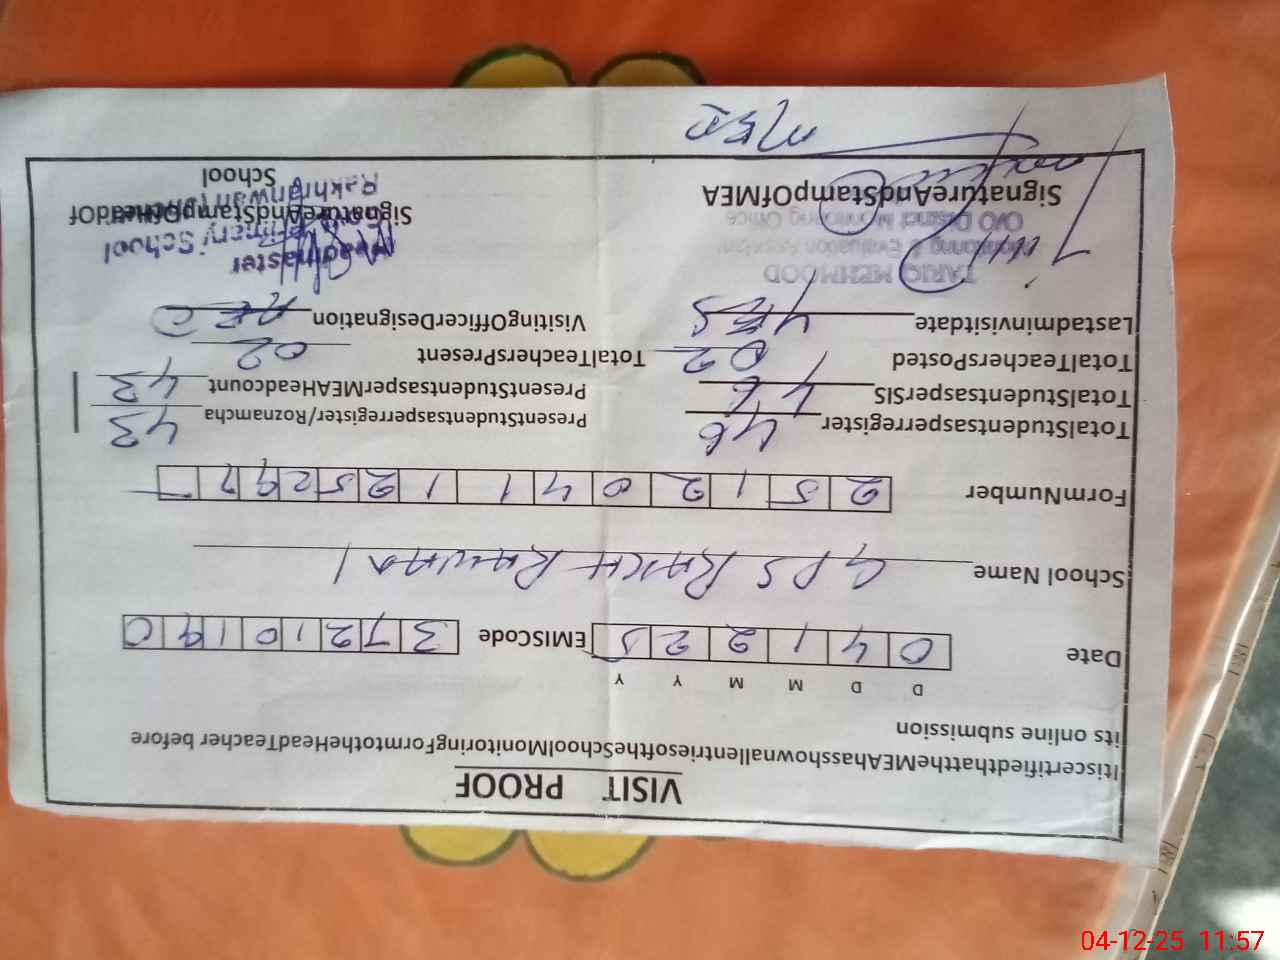 VISIT PROOF
ItiscertifiedthattheMEAhasshownallentriesoftheSchoolMonitoringFormtotheHeadTeacher before
its online submission
D D M M Y Y
Date 0 4 1 2 2 5 EMISCode 3 7 2 1 0 1 9 0
School Name GPS RAKH RAWHAN 1
FormNumber 2 5 1 2 0 4 1 1 2 5 2 9 7
TotalStudentsasperregister 46 PresentStudentsasperregister/Roznamcha 43
TotalStudentsasperSIS 46 PresentStudentsasperMEAHeadcount 43
TotalTeachersPosted 02 TotalTeachersPresent 02
Lastadminvisitdate YES VisitingOfficerDesignation AEO
TARIQ MEHMOOD Headmaster
Monitoring & Evaluation Assistant Primary School
O/O District Monitoring Office
SignatureAndStampOfMEA SignatureAndStampOfHeadOf
School
MEA
04-12-25 11:57